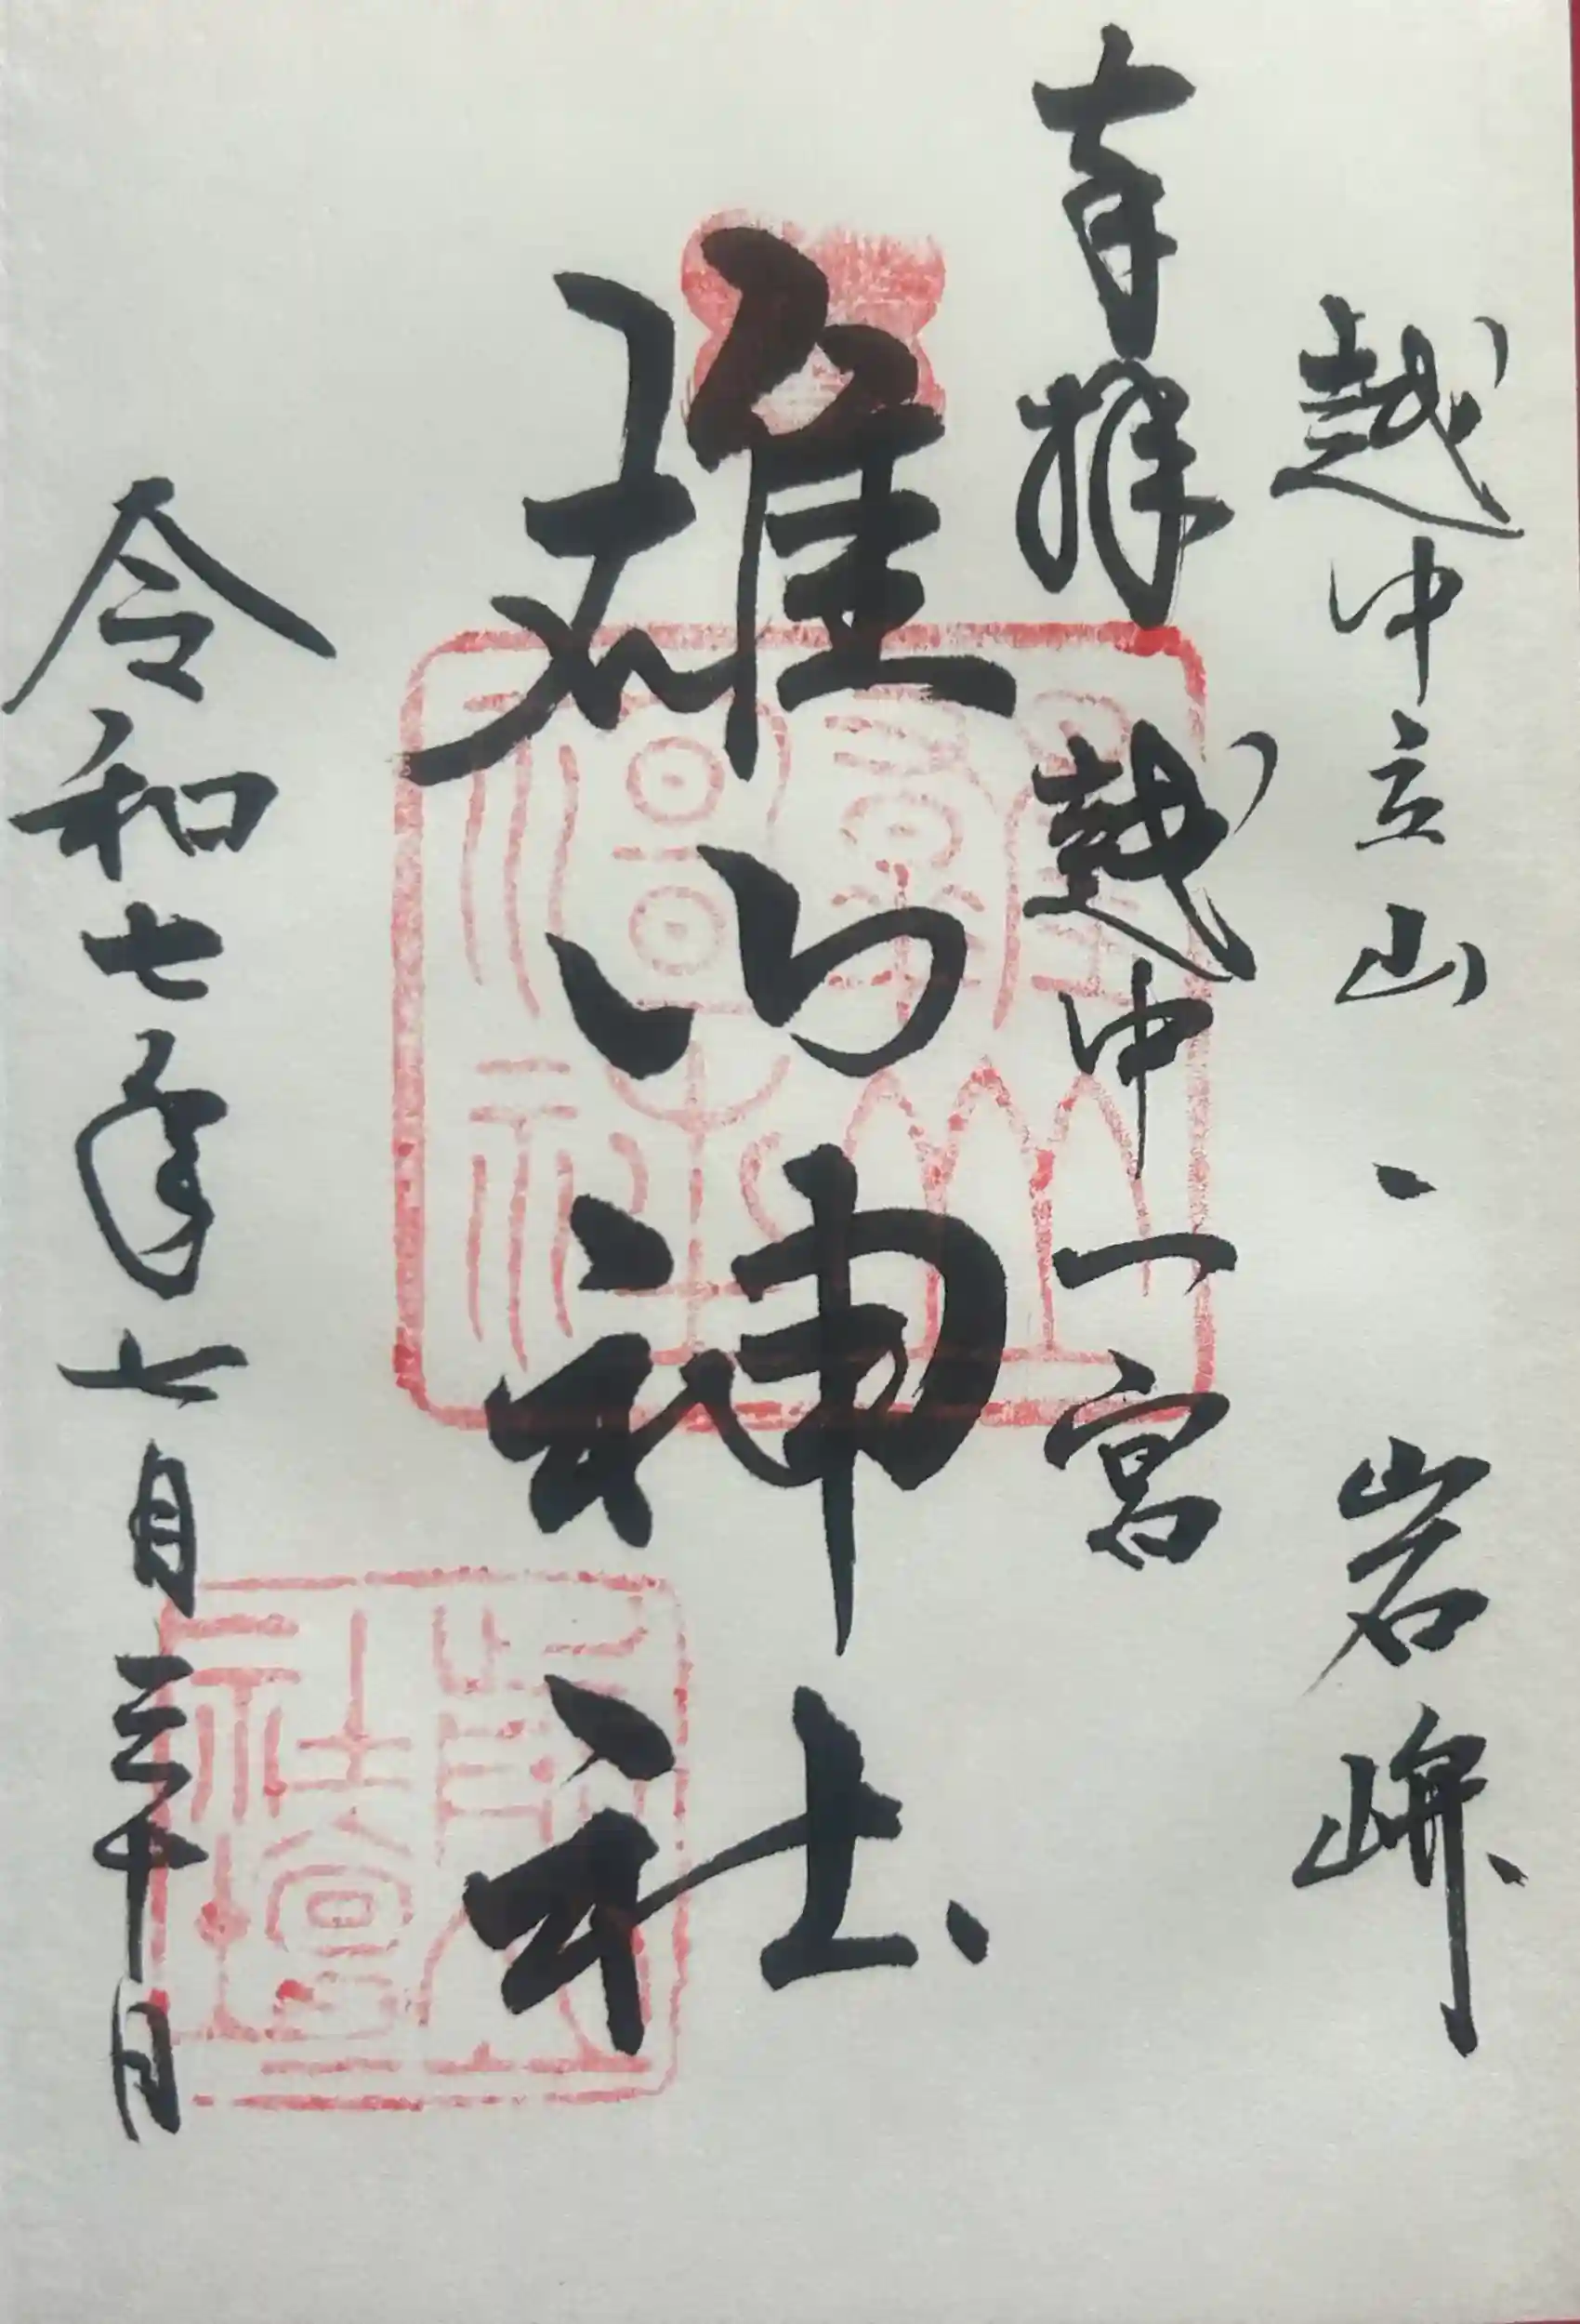 越中立山、岩峅
奉拝 越中一宮
雄山神社
令和七年七月三十日
雄山神社